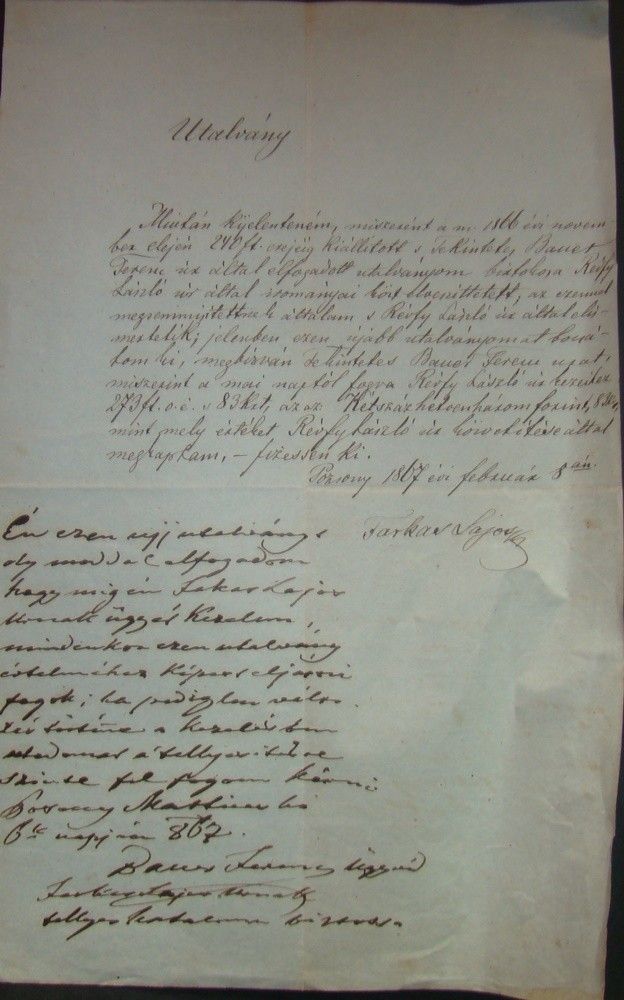 Utalvány
Miután kijelenteném, miszerint a m. 1866 évi novem
ber elején 240 ft. erejéig kiállított s tekintetes Bauer
Ferenc úr által elfogadott utalványom birtokosa Révfy
László úr által okmányai közt elveszittetett, az ezennel
megsemmisittetnek általam s Révfy László úr által elis-
mertetik; jelenben ezen újabb utalványomat bocsá-
tom ki, megbizván tekintetes Bauer Ferenc urat,
miszerint a mai naptól fogva Révfy László úr kezeihez
273 ft. o. é. s 83 krt, azaz Kétszázhetvenhárom forint, 83 kr,
mint mely értéket Révfy László úr követétése által
megkaptam, – fizessen ki.
Pozsony 1867 évi február 8 án.
Farkas Lajos
Én ezen ujj utalványt
oly moddal elfogadom
hogy mig én Farkas Lajos
Urnak ügyét Kezelem,
mindenkor ezen utalvány
értelméhez képest eljárni
fogok; ha pediglen válto-
zás történe a kezelésben
a tellyesitése
fel fogom kérni
Posony Martius hó
6k napján 867.
Bauer Ferencz Ügyvéd
Farkas Lajos Urnak
tellyes hatalmu